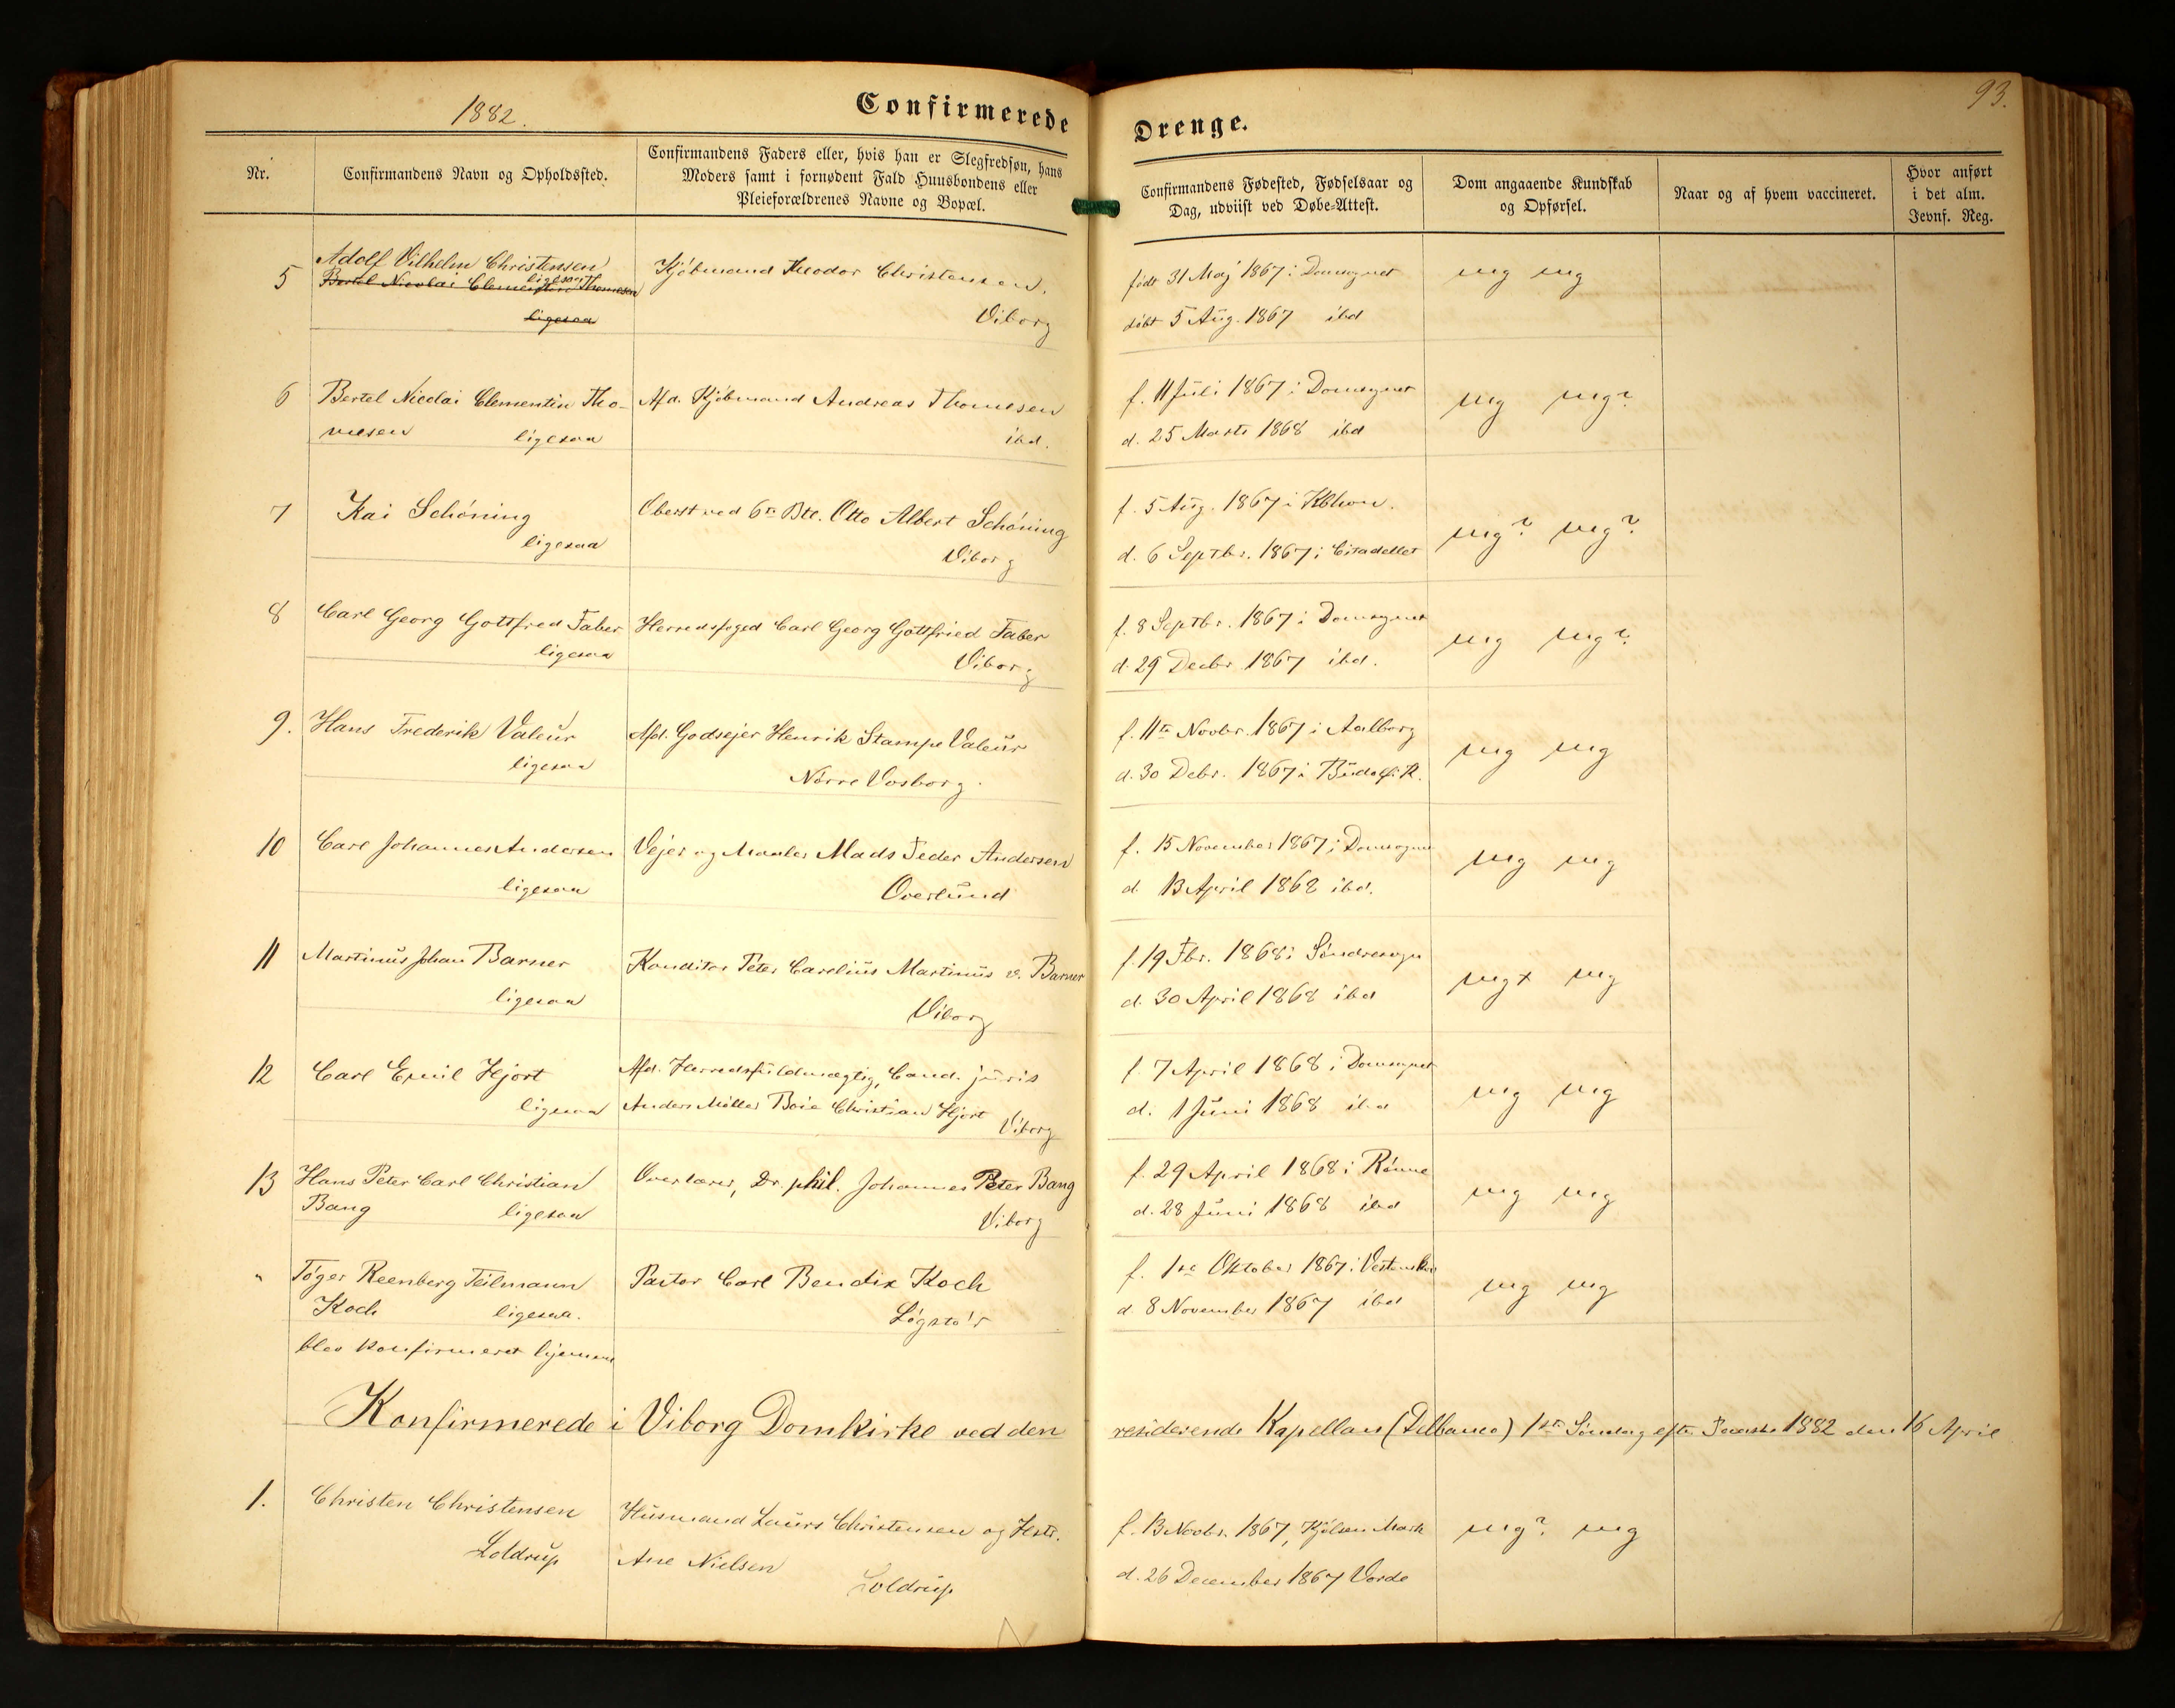 1882.
Confirmerede
Nr.
Confirmandens Navn og Opholdssted.
Confirmandens Faders eller, hvis han er Slegfredsøn, hans
Moders samt i fornødent Fald Huusbondens eller
Pleieforældrenes Navne og Bopæl.
93.
Drenge.
Confirmandens Fødested, Fødselsaar og
Dag, udviist ved Døbe-Attest.
Dom angaaende Kundskab
og Opførsel.
Naar og af hvem vaccineret.
Hvor anført
i det alm.
Jevnf. Reg.
5
Adolf Vilhelm Christensen
ligesaa
Bertel Nicolai Clementin Thomesen
ligesaa
Kjøbmand Theodor Christensen.
Viborg
født 31 Maj 1867 i Domsognet
døbt 5 Aug. 1867 ibd
mg mg
6
Bertel Nicolai Clementin Tho-
mesen ligesaa
Afd. Kjøbmand Andreas Thomesen
ibd.
f. 11 Juli 1867 i Domsognet
d. 25 Marts 1868 ibd
mg mg?
7
Kai Schöning
ligesaa
Oberst ved 6te Btl. Otto Albert Schöning
Viborg
f. 5 Aug. 1867 i Kbhvn.
d. 6 Septbr. 1867 i Citadellet
mg? mg?
8
Carl Georg Gottfred Faber
ligesaa
Herredsfoged Carl Georg Gottfried Faber
Viborg
f. 8 Septbr. 1867 i Domsognet
d. 29 Decbr 1867 ibd.
mg mg?
9.
Hans Frederik Valeur
ligesaa
Afd. Godsejer Henrik Stampe Valeur
Nørre Vosborg.
f. 11te Novbr. 1867 i Aalborg
d. 30 Debr. 1867 i Budolfi K.
mg mg
10
Carl Johannes Andersen
ligesaa
Vejer og Maaler Mads Peder Andersen
Overlund
f. 15 November 1867 i Domsognet
d. 13 April 1868 ibd.
mg mg
11
Martinus Johan Barner
ligesaa
Konditor Peter Carelius Martinus v. Barner
Viborg
f. 19 Fbr. 1868 i Søndresogn
d. 30 April 1868 ibd
mg+ mg
12
Carl Emil Hjort
ligesaa
Afd. Herredsfuldmægtig, Cand. juris
Anders Møller Boie Christian Hjort
Viborg
f. 7 April 1868 i Domsognet
d. 1 Juni 1868 ibd
mg mg
13
Hans Peter Carl Christian
Bang ligesaa
Overlærer, Dr. phil. Johannes Peter Bang
Viborg
f. 29 April 1868 i Rönne
d. 28 Juni 1868 ibd
mg mg
"
Tøger Reenberg Teilmann
Koch ligesaa.
blev konfirmeret hjemme
Pastor Carl Bendix Koch
Løgstør
f. 1ste Oktober 1867 i
d. 8 November 1867 ibd
mg mg
Konfirmerede i Viborg Domkirke ved den residerende Kapellan (Delbanco) 1ste Søndag efter Paaske 1882 den 16 April
1.
Christen Christensen
Loldrup
Husmand Laurs Christensen og Hstr.
Ane Nielsen
Loldrup
f. 13 Novbr. 1867, Kjølsen Mark
d. 26 December 1867 Vorde
mg? mg